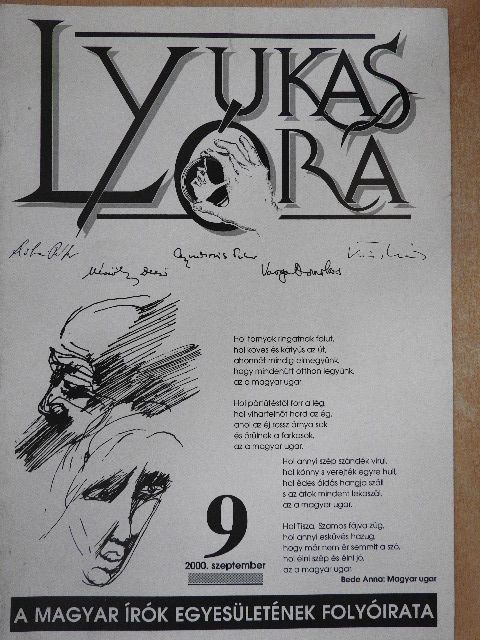 LYUKAS
ÓRA
Varga Domokos
Hol tornyok ringatnak falut,
hol köves és kátyús az út,
ahonnét mindig elmegyünk,
hogy mindenütt otthon legyünk,
az a magyar ugar.
Hol pártütéstől forr a lég,
hol viharfelhőt hord az ég,
ahol az éj rossz árnya sok
és őrülnek a farkasok,
az a magyar ugar.
Hol annyi szép szándék virul,
hol könny s verejték egyre hull,
hol édes áldás hangja száll
s az átok mindent lekaszál,
az a magyar ugar.
Hol Tisza, Szamos fájva zúg,
hol annyi esküvés hazug,
hogy már nem ér semmit a szó,
hol élni szép és élni jó,
az a magyar ugar.
Bede Anna: Magyar ugar
9
2000. szeptember
A MAGYAR ÍRÓK EGYESÜLETÉNEK FOLYÓIRATA